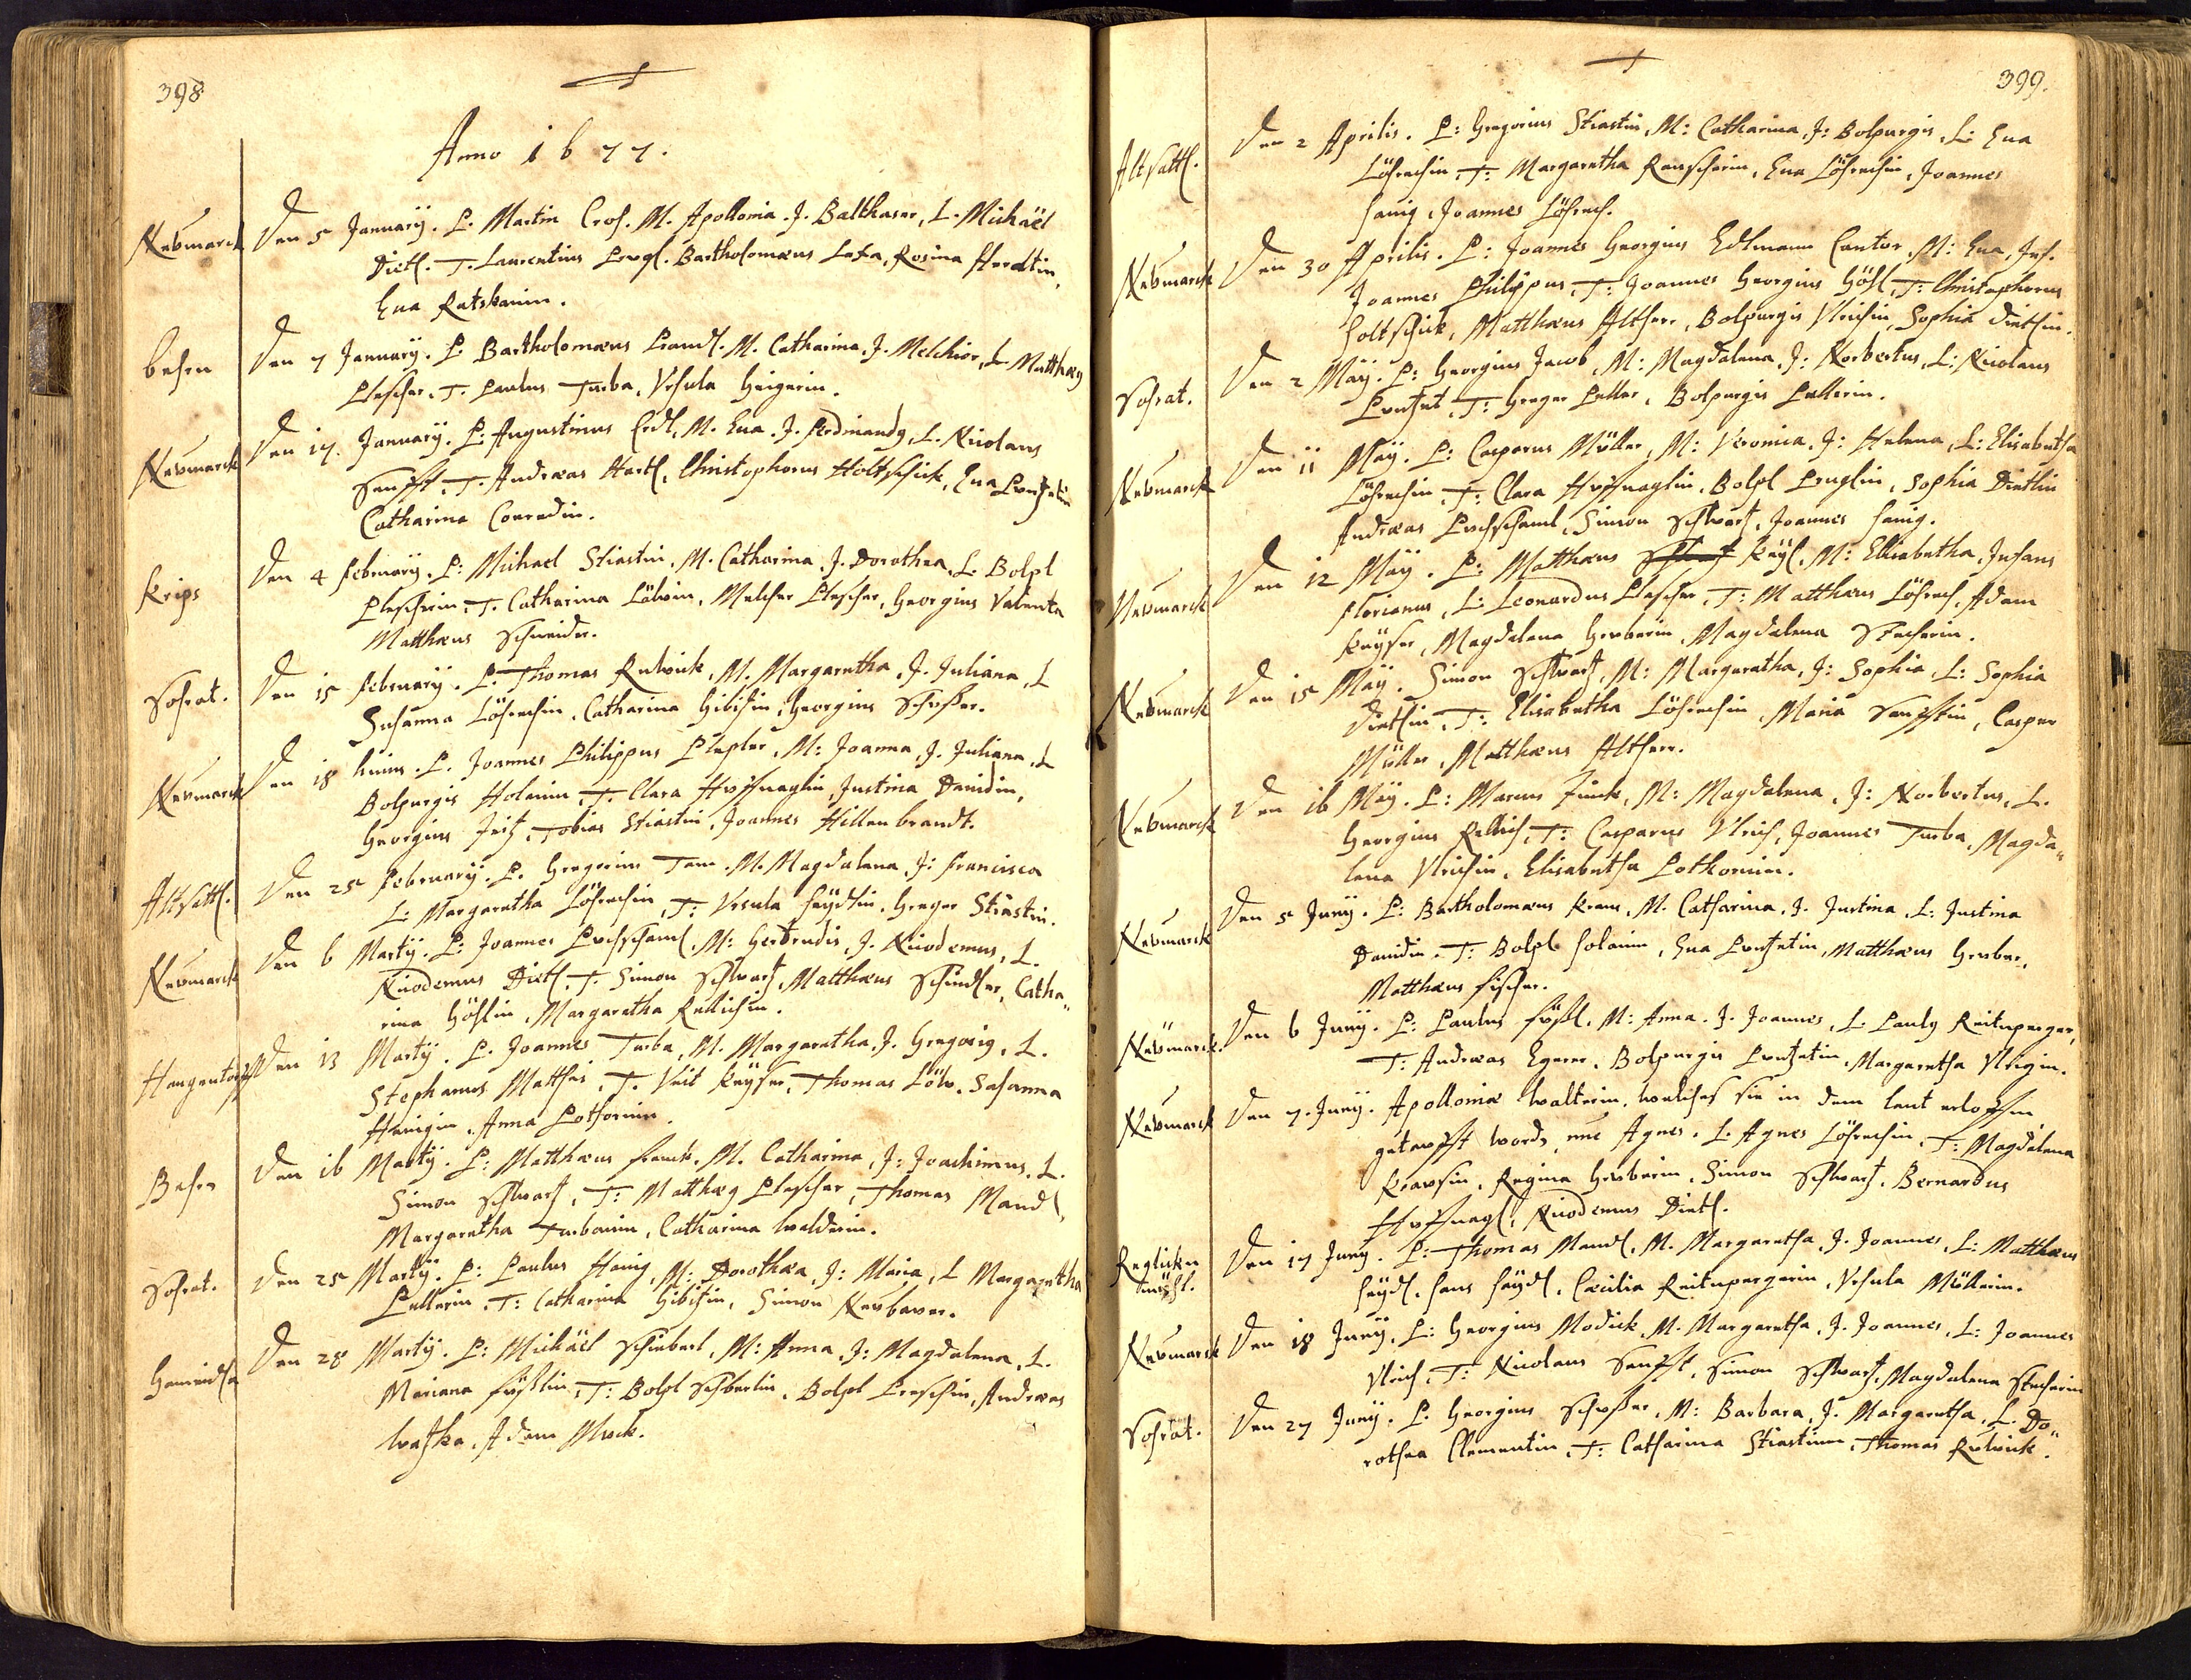 398
Anno 1677.
Neumarck Den 5 January. P. Martin Cros. M. Apollonia. J. Balthasar, L. Michaël
Dietl. T. Laurentius Bartholomæus Rosina
Eua Ratskanin.
Den 7 January. P. Bartholomæus M. Catharina. J. Melchior, L. Matthæg
Plescher. T. Paulus Turba, Vrsula Geigerin.
Neumarck Den 17. January. P. Augustinus Erdl, M. Eua. J. Ferdinandg, L. Nicolaus
Sanfft, T. Andreas Hartl, Christophorus Holtschick, Eua
Catharina Conradin.
Krips Den 4 February. P: Michael Stiastni, M. Catharina. J. Dorothea, L. Bolpl
Plescherin. T. Catharina Löwin, Melcher Plescher, Georgius Valenta
Matthæus Schneider.
Sofrat. Den 15 February. P. Thomas Rulwick, M. Margaretha, J. Juliana, L
Susanna Löhrechin, Catharina Gibisin, Georgius Schuster.
Neumarck Den 18 huius. P. Joannes Philippus Plepler, M: Joanna, J. Juliana, L
Bolpurgis Holanin. T. Clara Huffnaglin, Justina Dauidin,
Georgius Tobias Stiastni, Joannes Hillenbrandt.
Altsattl. Den 25 February. P. Gregorius Tam. M. Magdalena, J: Francisca
L: Margaretha Löhrechin, T: Vrsula Haydlin, Greger Stiastni.
Neumarck Den 6 Marty. P: Joannes Puchschaml, M: Gertrudis, J. Nicodemus, L.
Nicodemus Dietl. T. Simon Schwartz, Matthæus Schindler, Catha„
rina Höslin, Margaretha Rellichin.
Hangentorff Den 13 Marty. P. Joannes Turba, M. Margaretha, J. Gregorig, L.
Stephanus Matthes, T. Veit Kayser, Thomas Löw, Susanna
Hanigin, Anna Lothorinn.
Den 16 Marty. P: Matthæus Franck, M. Catharina, J: Joachimus, L.
Simon Schwartz, T: Matthæg Plescher, Thomas Mandl,
Margaretha Turbanin, Catharina Walderin.
Sofrat. Den 25 Marty. P: Paulus Hanig, M: Dorothæa, J: Maria, L Margaretha
Pellerin. T: Catharina Gibisin, Simon Neubauer.
Den 28 Marty. P: Michäel Schieberl, M: Anna, J: Magdalena, L.
Mariana Füßlin, T: Bolpl Schberlin, Bolpl Andreas
Adam Muck.
399.
Altsattl. Den 2 Aprilis. P: Gregorius Stiastni, M: Catharina, J: Bolpurgis, L: Eua
Löhrechin, T: Margaretha Rauscherin, Eua Löhrechin, Joannes
Hanig, Joannes Löhrech.
Neumarck Den 30 Aprilis. P: Joannes Georgius Edlmann Cantor, M: Eua, Inf.
Joannes Philippus, T: Joannes Georgius Hösl, T: Christophorus
Holtschick, Matthæus Altherr, Bolpurgis Vlrichin, Sophia Dietlin.
Sofrat. Den 2 May. P: Georgius Jacob, M: Magdalena, J: Norbertus, L: Nicolaus
T: Greger Peller, Bolpurgis Pellerin.
Neumarck Den 11 May. P: Casparus Müller, M: Veronica, J: Helena, L: Elisabetha
Löhrechin, T: Clara Huffnaglin, Bolpl Pruglin, Sophia Dietlin
Andreas Puchschaml, Simon Schwartz, Joannes Hanig.
Neumarck Den 12 May. P: Matthæus Kayl, M: Elisabetha, Infans
Florianus, L: Leonardus Plescher, T: Matthæus Löhrech, Adam
Kayser, Magdalena Gerberin, Magdalena Stecherin.
Neumarck Den 15 May. Simon Schwartz, M: Margaretha, J: Sophia, L: Sophia
Dietlin, T: Elisabetha Löhrechin, Maria Sanfftin, Caspar
Müller, Matthæus Altherr.
Neumarck Den 16 May. P: Marcus Zinck, M: Magdalena, J: Norbertus, L.
Georgius Rellich, T: Casparus Vlrich, Joannes Turba, Magda„
lena Vlrichin, Elisabetha Lothorinn.
Neumarck Den 5 Juny. P: Bartholomæus Kraus, M. Catharina, J. Justina, L: Justina
Dauidin. T: Bolpl Holanin, Eua Matthæus Gerber,
Matthæus Fischer.
Neumarck. Den 6 Juny. P: Paulus Füßl, M: Anna. J. Joannes, L. Paulg Reitnperger,
T: Andreas Egerer, Bolpurgis Margaretha Vlrigin.
Neumarck Den 7. Juny. Apollonia Walterin, welches sie in dem
getaufft word, Agnes. L. Agnes Löhrechin, T: Magdalena
Krausin, Regina Gerberin, Simon Schwartz, Bernardus
Huffnagl, Nicodemus Dietl.
mühl. Den 17 Juny. P: Thomas Mandl, M. Margaretha, J. Joannes, L: Matthæus
Haydl, Hans Haydl, Cæcilia Reitnpergerin, Vrsula Müllerin.
Neumarck Den 18 Juny. P: Georgius Modick, M. Margaretha, J. Joannes, L: Joannes
Vlrich, T: Nicolaus Sanfft, Simon Schwartz, Magdalena Stecherin
Sofrat. Den 27 Juny. P. Georgius Schuster, M: Barbara, J. Margaretha, L. Do„
rothea Clementin, T: Catharina Stiastnin, Thomas Rulwick.